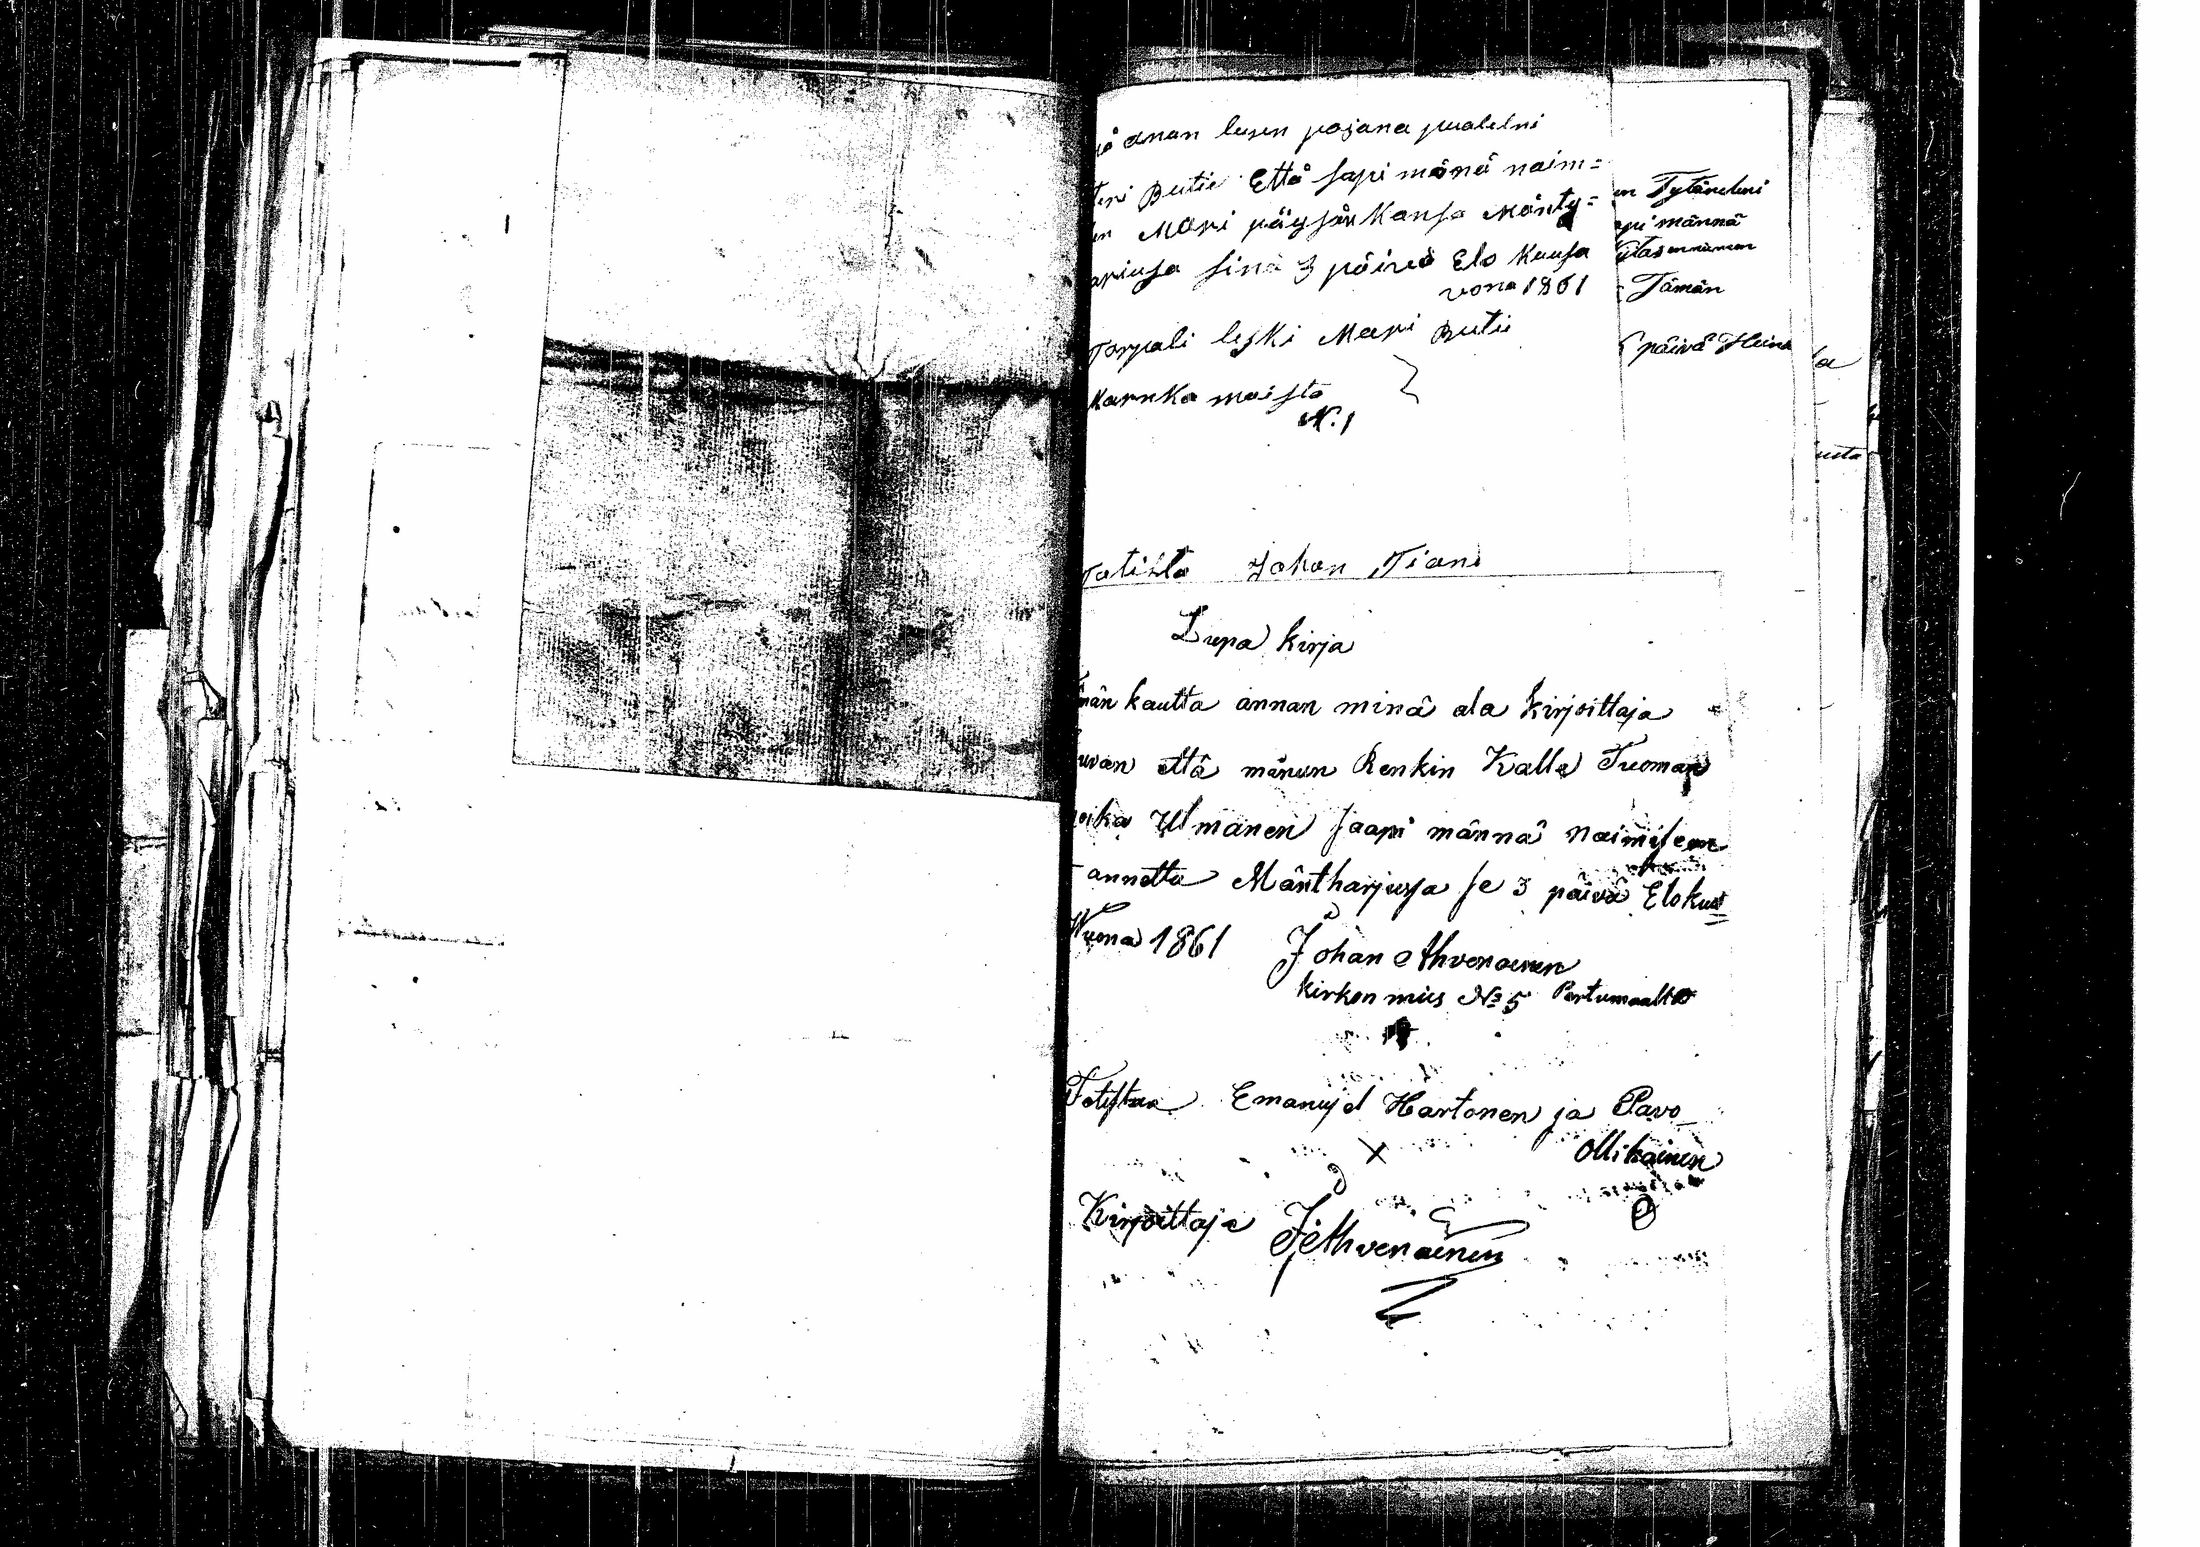 anan lusen pojana puolelni
Että sapi mänä naim=
Mari päysän Kansa Mänty=
sinä 3 päivä Elo Kuusa
vona 1861
Torpali leski Mari
Karnka maista
N:1
Totista Johan Tiani
Tytärelleni
männä
Tämän
päivä Hein
la
usta
Lupa kirja
män kautta annan minä ala kirjoittaja
uvan että minun Renkin Kalle Tuoman
oika Utmanen saapi männä naimiseen
annettu Mäntharjusa se 3 päivä Elokus
Wuona 1861 Johan Ahvenainen
kirkon mies No 5 Pertumaalta
Totistaa Emanujel Hartonen ja Pavo
X Ollikainen
Kirjoittaja J Ahvenainen